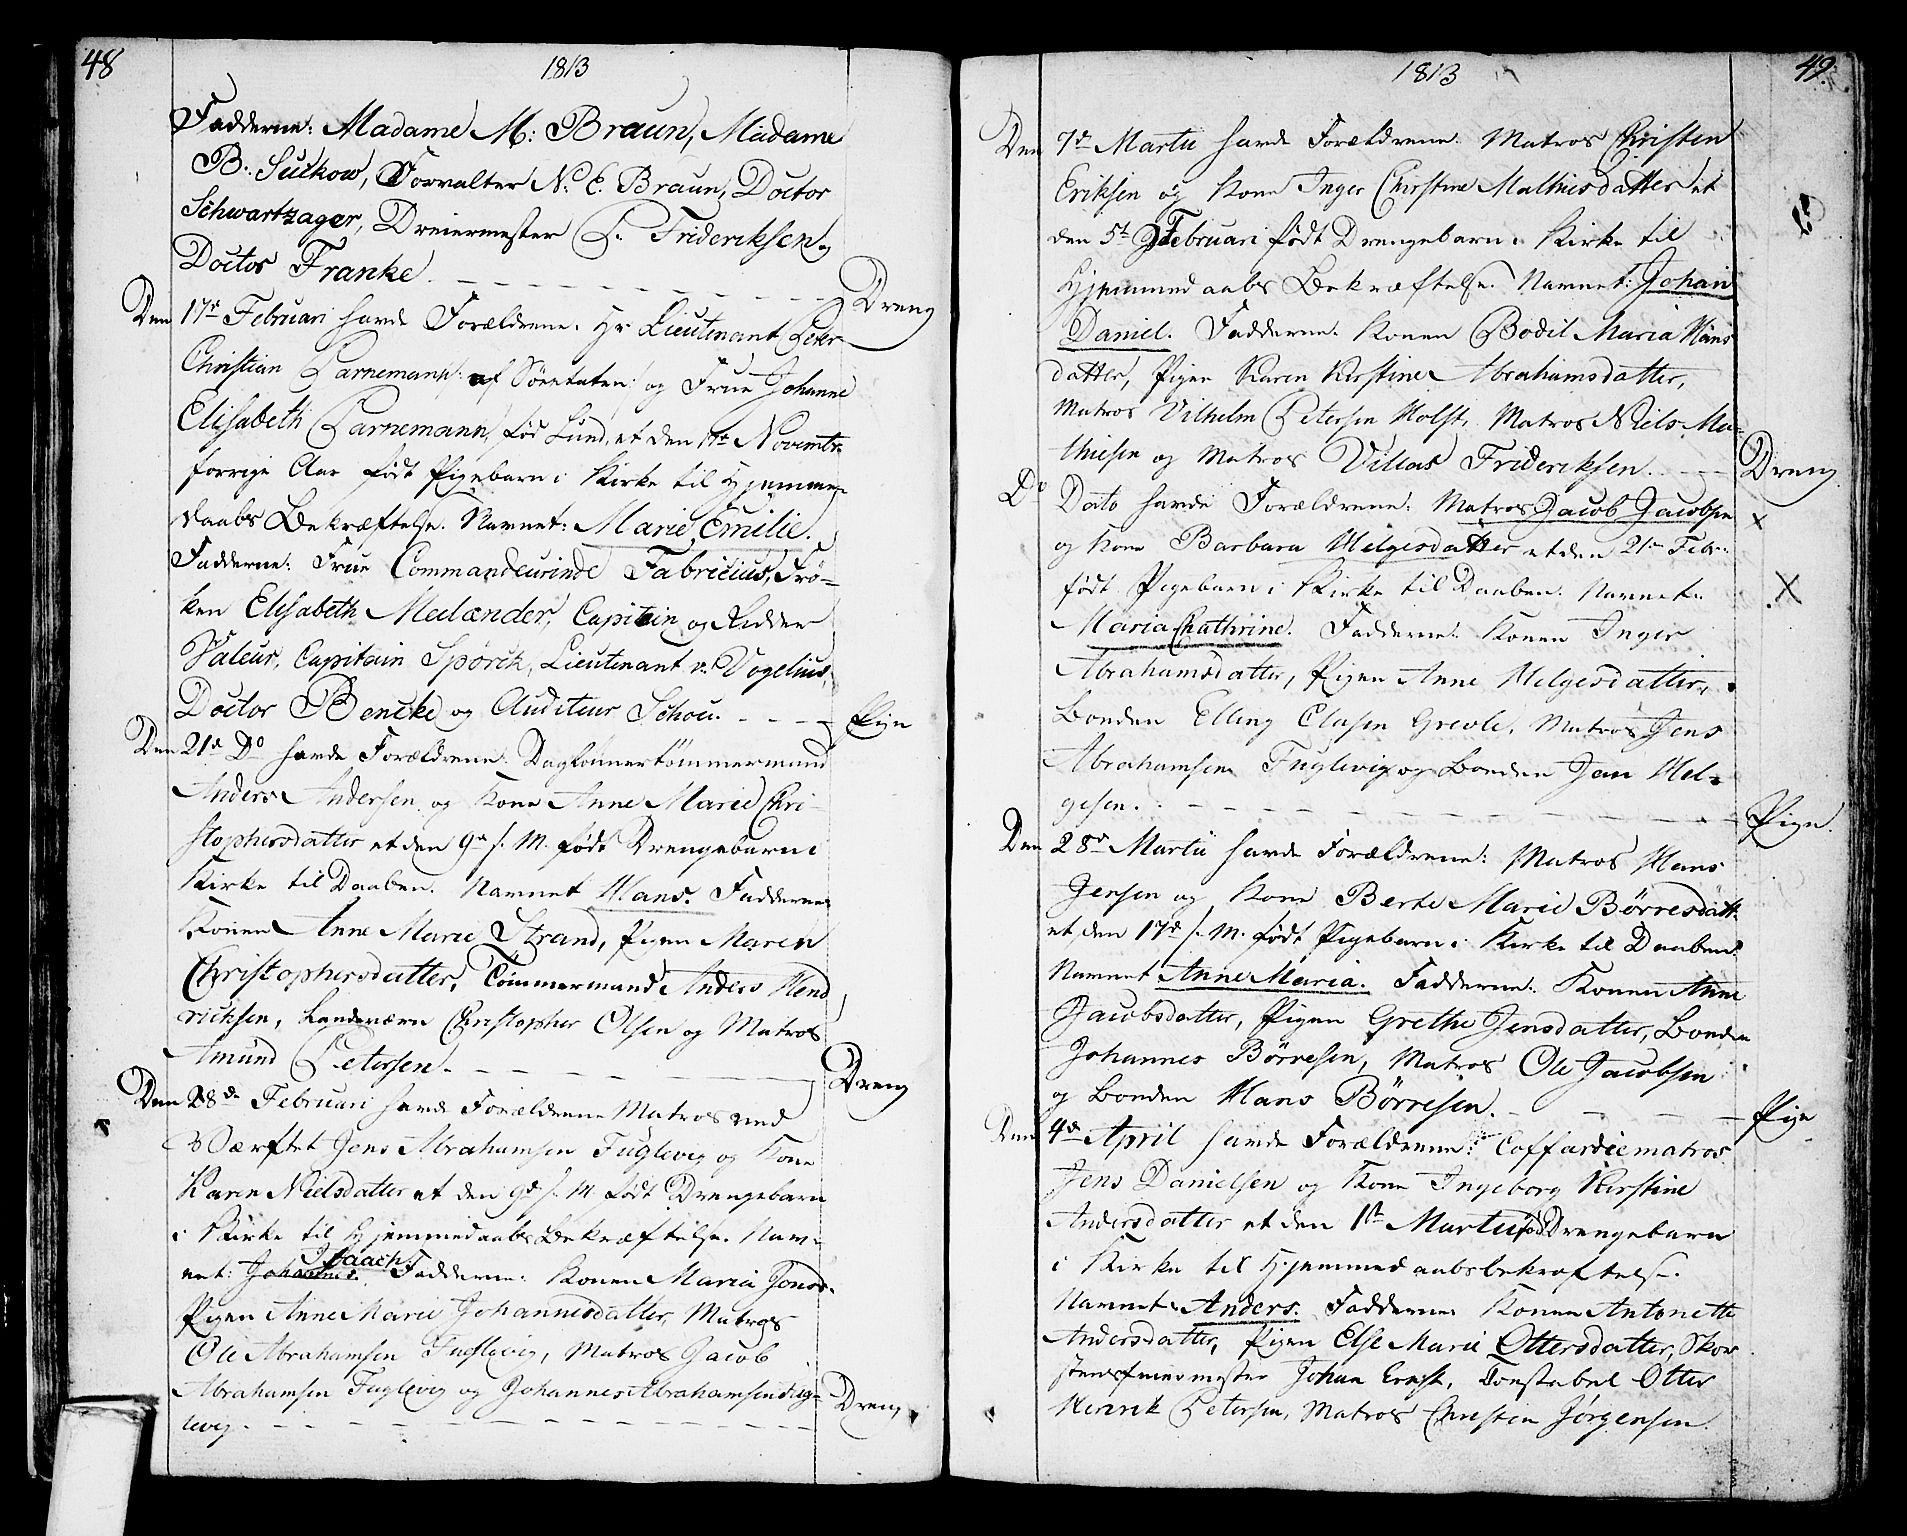 48
1813
Fadderne: Madame M: Braun, Madame
B: Suckow, Forvalter N. E. Braun, Doctor
Schwartzager, Dreiermester L. Frideriksen og
Doctor Franke. Dreng
Den 17de Februari havde Forældrene: Hr Lieutenant Peter
Christian Parnemann: af Søeetaten: og Frue Johanne
Elisabeth Parnemann, fød Lund, et den Novembr.
forrige Aar født Pigebarn i Kirke til Hjemme
daabs Bekræftelse. Navnet: Marie Emilie.
Fadderne: Frue Commandeurinde Fabricius, Frø-
ken Elisabeth Meelænder, Capitain og Ridder
Valeur, Capitain Spørck, Lieutenant v. Vogelius,
Doctor Bencke og Auditeur Schou. Pige
Den 21de Do havde Forældrene: Daglønnertømmermand
Anders Andersen og Kone Anne Marie Chri-
stophersdatter et den 9de s. M. født Drengebarn i
Kirke til Daaben. Navnet Hans. Fadderne
Konen Anne Marie Strand, Pigen Maren
Christophersdatter, Tømmermand Anders Hend
ricksen, Landeværn Christopher Olsen og Matros
Amund Petersen. Dreng
Den 28de Februari havde Forældrene Matros ved
Værftet Jens Abrahamsen Fuglevig og Kone
Karen Nielsdatter et den 9de s. M. født Drengebarn
i Kirke til Hjemmedaabs Bekræftelse. Nav-
net: Johannes Isaach. Fadderne: Konen Maria Jensd.
Pigen Anne Marie Johannesdatter, Matros
Ole Abrahamsen Fuglevig, Matros Jacob
Abrahamsen Fuglevig og Johannes Abrahamsen Fug-
levig. Dreng
49.
1813
Den 7de Martii havde Forældrene: Matros Christen
Eriksen og Kone Inger Chirstine Mathiesdatter et
den 5te Februari født Drengebarn i Kirke til
Hjemmedaabs Bekræftelse. Navnet: Johan
Daniel. Fadderne: Konen Bodil Maria Hans
datter, Pigen Karen Kirstine Abrahamsdatter,
Matros Vilhelm Petersen Holst, Matros Niels Ma-
thiesen og Matros Villas Frideriksen. Dreng.
Do Dato havde Forældrene: Matros Jacob Jacobsen
og Kone Barbara Helgesdatter et den 21de Febr.
født Pigebarn i Kirke til Daaben. Navnet:
Maria Chathrine. Fadderne: Konen Inger
Abrahamsdatter, Pigen Anne Helgesdatter,
Bonden Elling Clasen Grevle, Matros Jens
Abrahamsen Fuglevig og Bonden Jan Hel-
gesen. Pige.
Den 28de Martii havde Forældrene: Matros Hans
Jensen og Kone Berte Marie Børresdatt.
et den 17de s. M. født Pigebarn i Kirke til Daaben.
Navnet Anne Maria. Fadderne: Konen Anne
Jacobsdatter, Pigen Grethe Jensdatter, Bonden
Johannes Børresen, Matros Ole Jacobsen
og Bonden Hans Børresen. Pige
Den 4de April havde Forældrene: Coffardiematros
Jens Danielsen og Kone Ingeborg Kirstine
Andersdatter et den 1ste Martii født Drengebarn
i Kirke til Hjemmedaabsbekræftelse.
Navnet: Anders. Fadderne: Konen Antonette
Andersdatter, Pigen Else Marie Ottersdatter, Skor
steensfeiermester Johan Ernst, Constabel Otter
Henrik Petersen, Matros Christen Jørgensen.